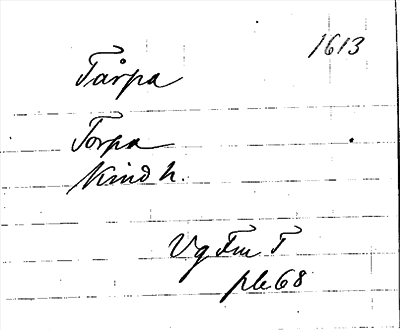 1613
Tårpa
Torpa
Kind h.
Vg Fru T
ple 68